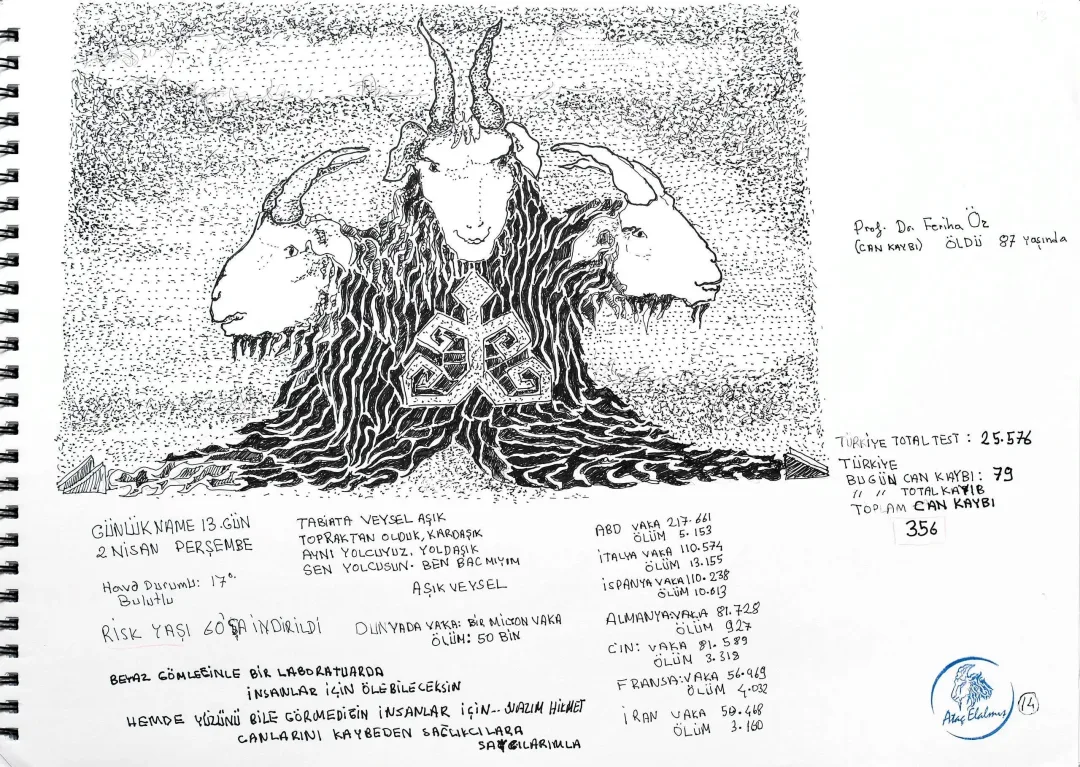 Prof. Dr. Feriha Öz
(CAN KAYBI) ÖLDÜ 87 Yaşında
TÜRKİYE TOTAL TEST : 25.576
TÜRKİYE
BUGÜN CAN KAYBI : 79
" " TOTAL KAYIB
TOPLAM CAN KAYBI
356
GÜNLÜKNAME 13.GÜN
2 NİSAN PERŞEMBE
Hava Durumu: 17°
Bulutlu
RİSK YAŞI 60'ŞA İNDİRİLDİ
TABİATA VEYSEL AŞIK
TOPRAKTAN OLDUK, KARDAŞIK
AYNI YOLCUYUZ. YOLDAŞIK
SEN YOLCUSUN. BEN BACMIYIM
AŞIK VEYSEL
DUNYADA VAKA: BİR MİLYON VAKA
ÖLÜM: 50 BİN
BEYAZ GÖMLEĞİNLE BİR LABORATUARDA
İNSANLAR İÇİN ÖLEBİLECEKSİN
HEMDE YÜZÜNÜ BİLE GÖRMEDİĞİN İNSANLAR İÇİN-- NAZIM HİKMET
CANLARINI KAYBEDEN SAĞLIKCILARA
SAYGILARIMLA
ABD VAKA 217.661
ÖLÜM 5.153
İTALYA VAKA 110.574
ÖLÜM 13.155
İSPANYA VAKA 110.238
ÖLÜM
ALMANYA:VAKA 81.728
ÖLÜM 927
ÇİN: VAKA 81.589
ÖLÜM 3.318
FRANSA:VAKA 56.969
ÖLÜM 4.032
İRAN VAKA 50.468
ÖLÜM 3.160
Ataç Elalmış
14